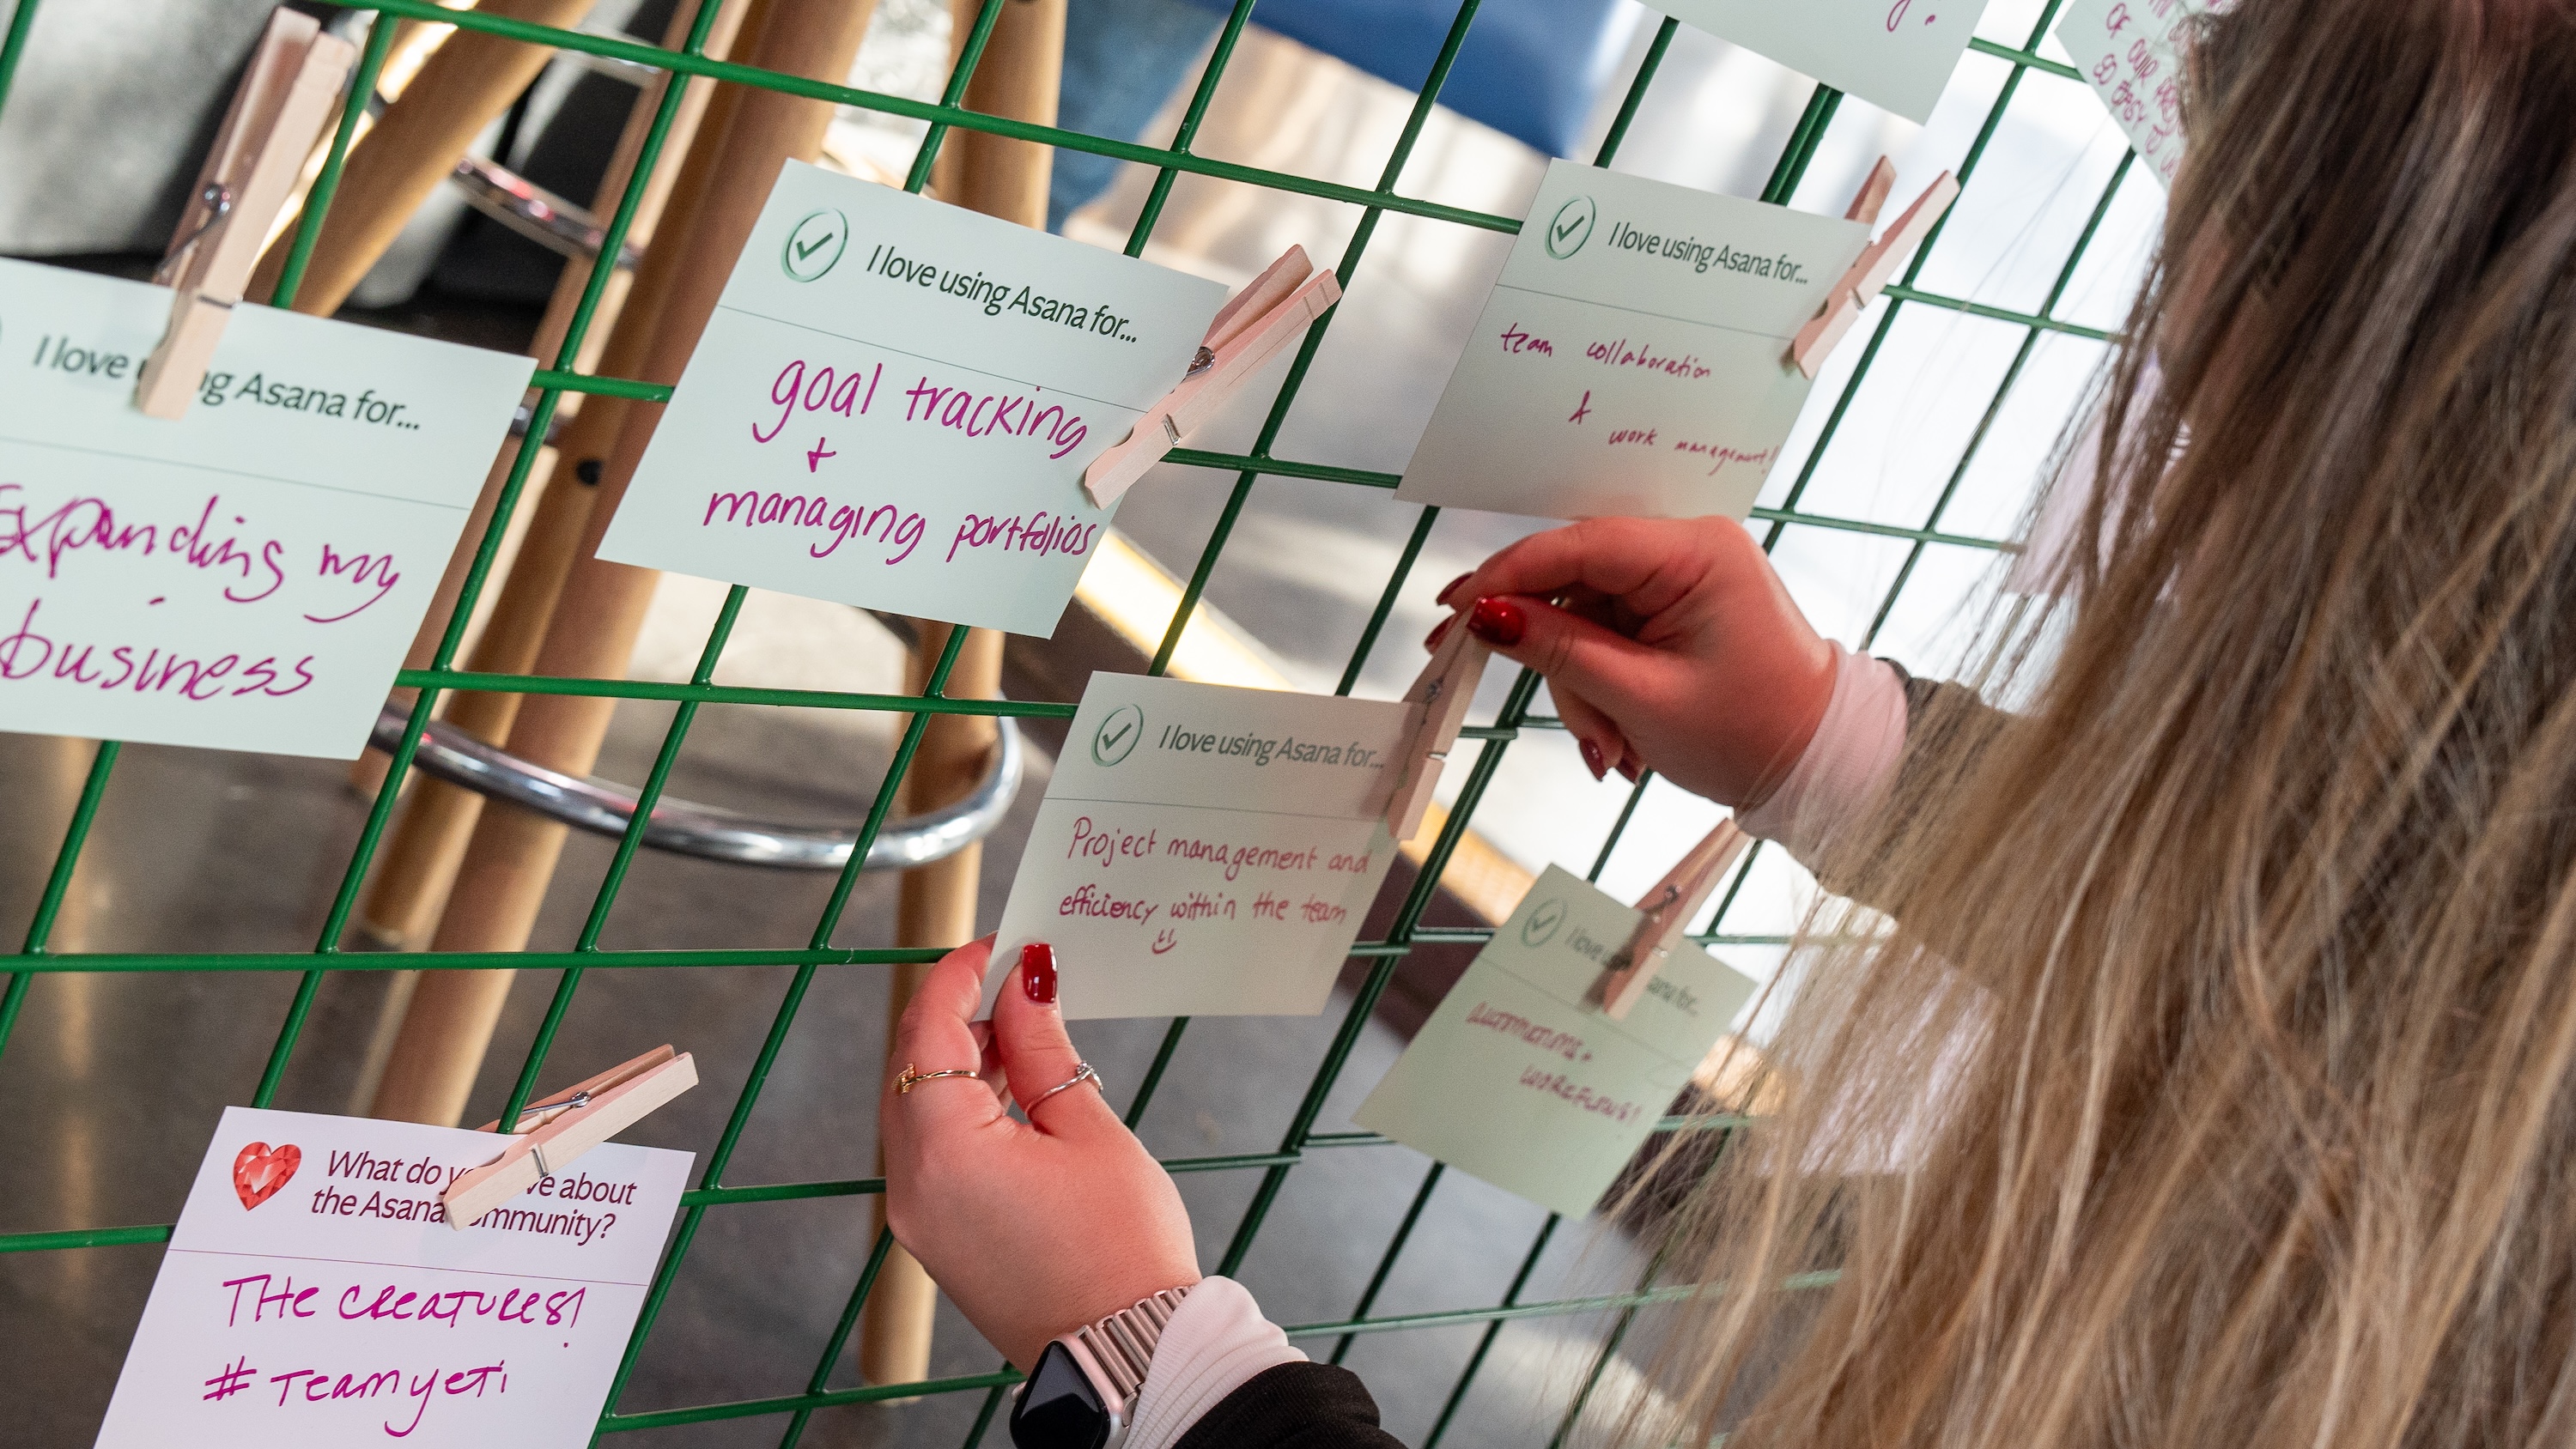 OF OUR
SO EASY
I love using Asana for...
Expanding my
business
I love using Asana for...
goal tracking
+
managing portfolios
I love using Asana for...
team collaboration
&
work management!
I love using Asana for...
Project management and
efficiency within the team
I love
Asana for...
AUTOMATIONS +
WORKFLOWS!
What do you love about
the Asana Community?
THe CReaTURes!
# Teamyeti